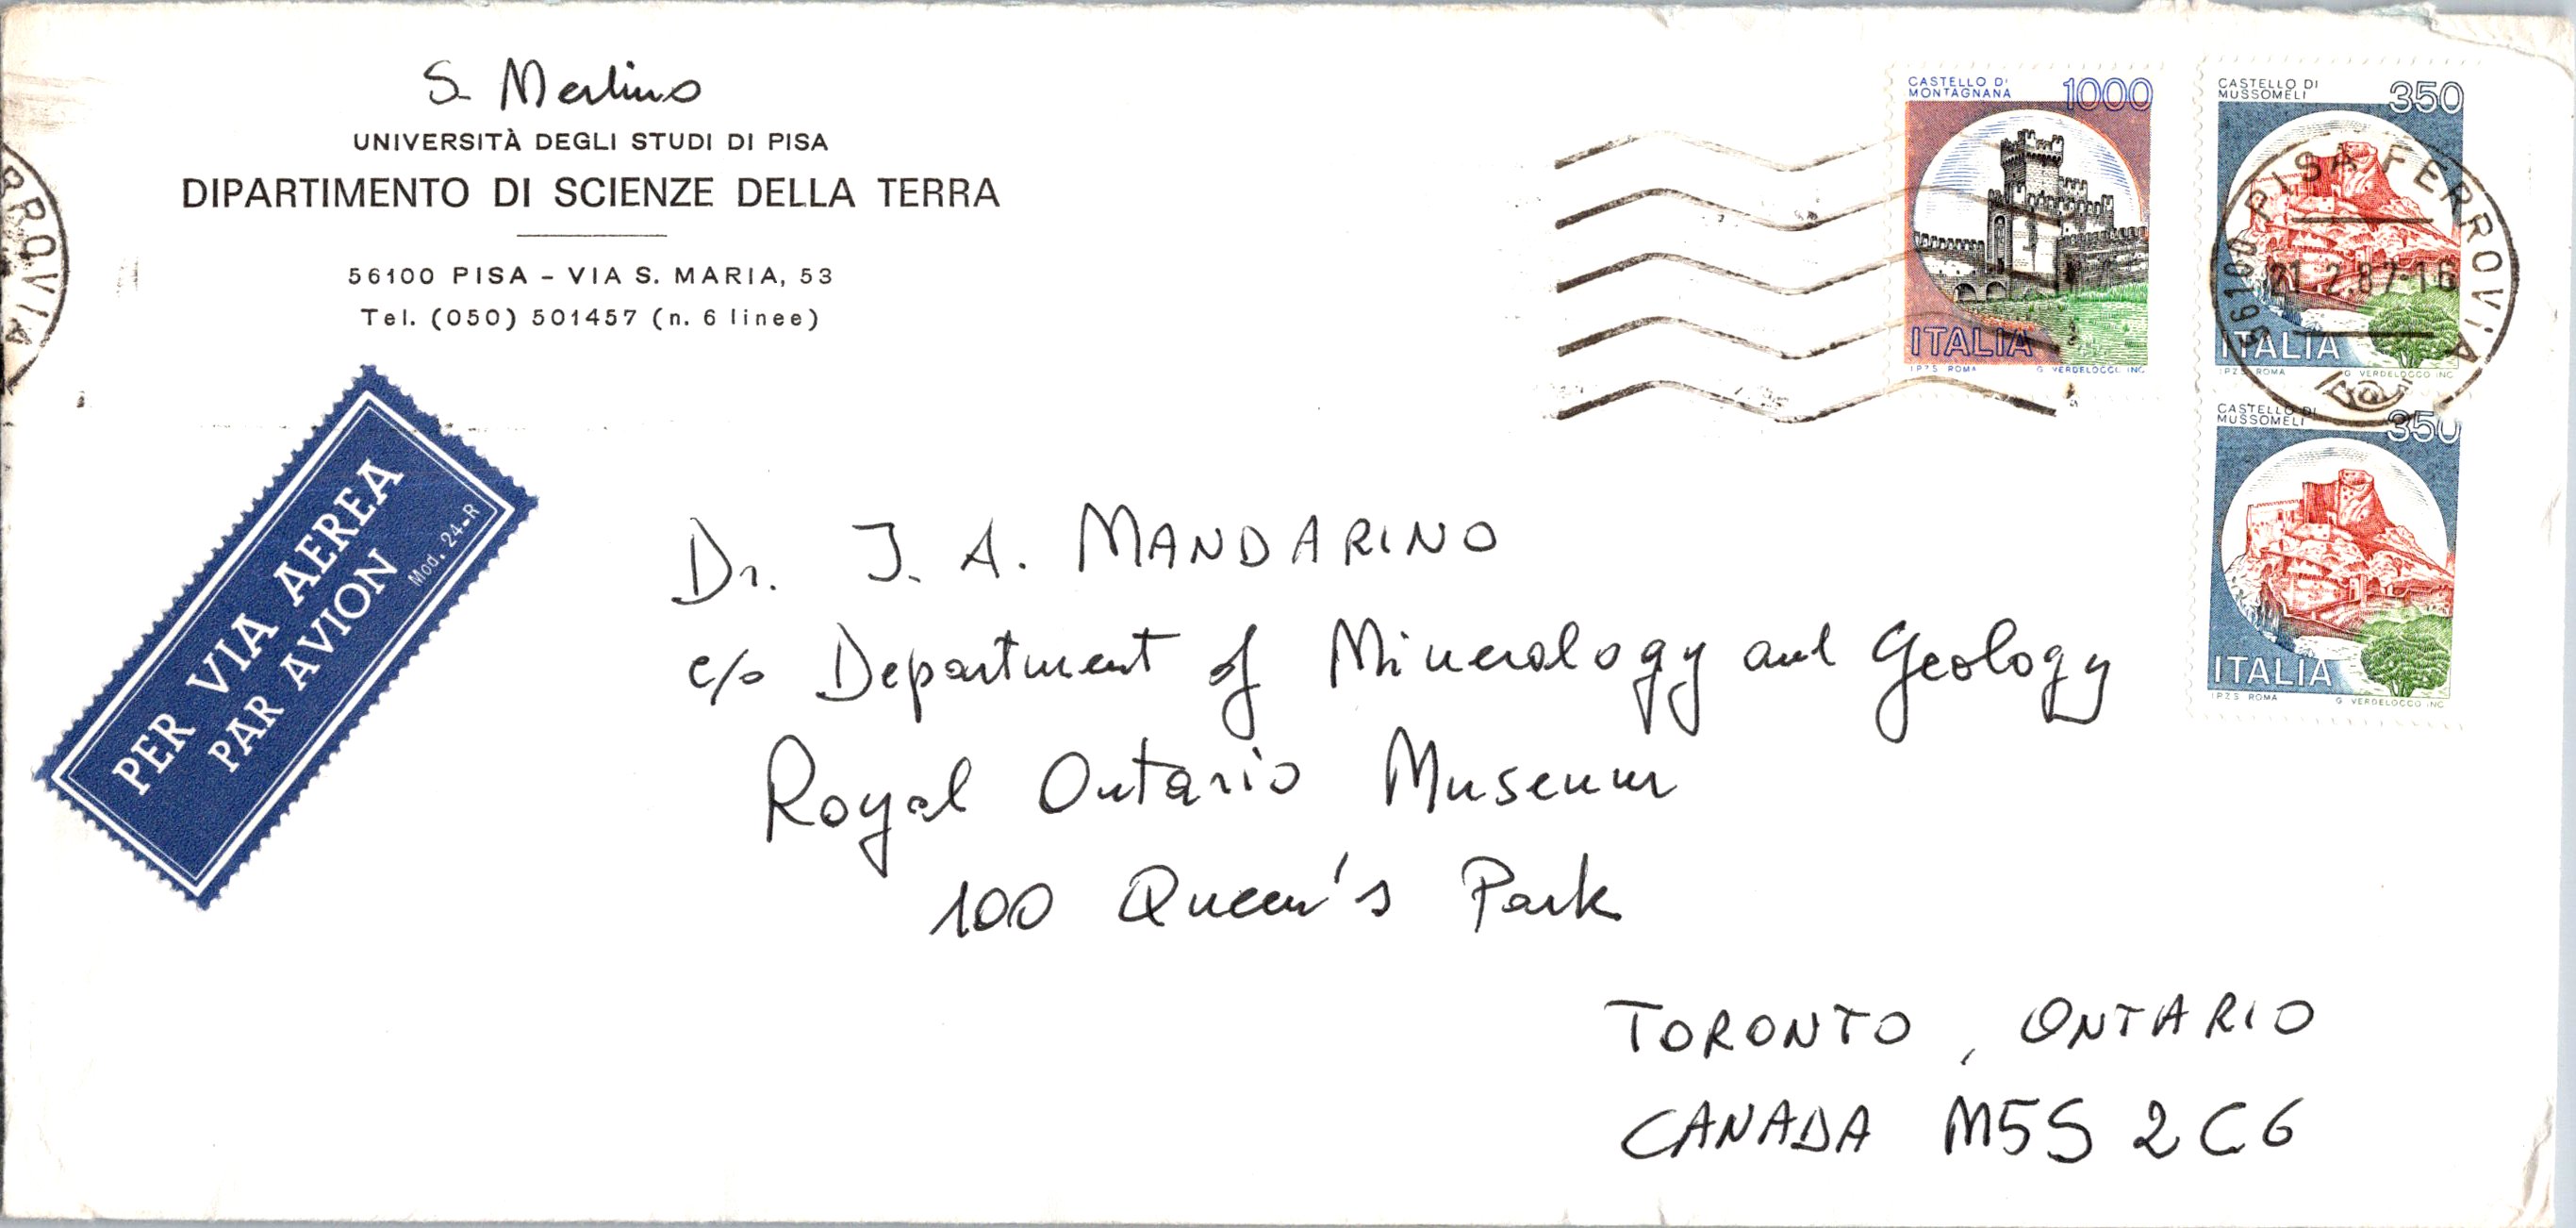 S. Merlino
UNIVERSITÀ DEGLI STUDI DI PISA
DIPARTIMENTO DI SCIENZE DELLA TERRA
56100 PISA - VIA S. MARIA, 53
Tel. (050) 501457 (n. 6 linee)
RROVIA
PER VIA AEREA
PAR AVION
Mod. 24-R
CASTELLO DI
MONTAGNANA
1000
ITALIA
I.P.Z.S. ROMA G. VERDELOCCO INC.
CASTELLO DI
MUSSOMELI
350
ITALIA
I.P.Z.S. ROMA G. VERDELOCCO INC.
56100 PISA FERROVIA
21.2.87-16
CASTELLO DI
MUSSOMELI
350
ITALIA
I.P.Z.S. ROMA G. VERDELOCCO INC.
Dr. J. A. MANDARINO
c/o Department of Mineralogy and Geology
Royal Ontario Museum
100 Queen's Park
TORONTO, ONTARIO
CANADA M5S 2C6